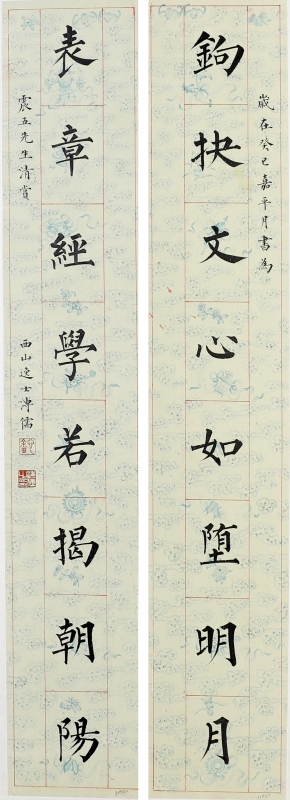 歲在癸巳嘉平月書為
鉤抉文心如堕明月
表章經學若揭朝陽
震五先生清賞
西山逸士溥儒